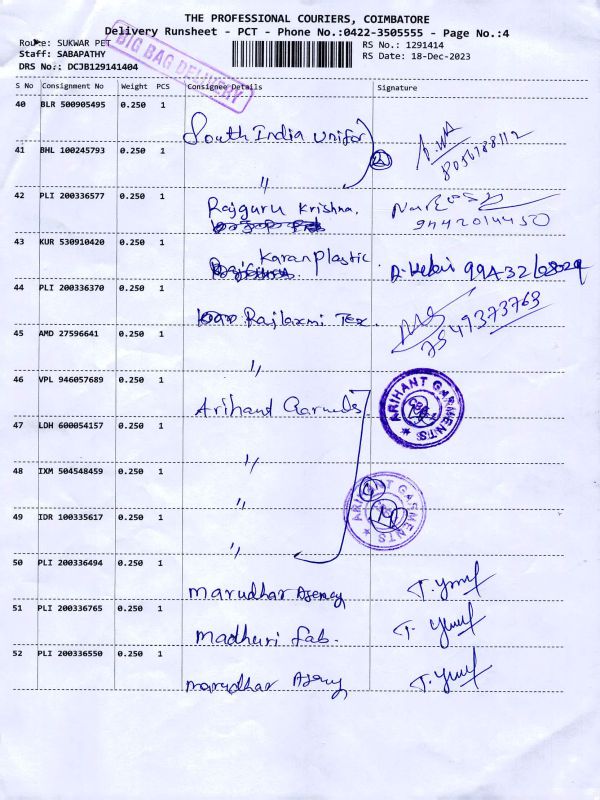 THE PROFESSIONAL COURIERS, COIMBATORE
Delivery Runsheet - PCT - Phone No.:0422-3505555 - Page No.:4
Route: SUKWAR PET
Staff: SABAPATHY
DRS No.: DCJB129141404
BIG BAG DELIVERY
RS No.: 1291414
RS Date: 18-Dec-2023
S No Consignment No Weight PCS Consignee Details Signature
40 BLR 500905495 0.250 1 South India Unifor
41 BHL 100245793 0.250 1 〃 2
42 PLI 200336577 0.250 1 Rajguru Krishna. 9442014450
43 KUR 530910420 0.250 1 Karan Plastic
44 PLI 200336370 0.250 1 Rajlaxmi Tex. 7549373763
45 AMD 27596641 0.250 1 〃
46 VPL 946057689 0.250 1 Arihant Garments ARIHANT GARMENTS
47 LDH 600054157 0.250 1 〃
48 IXM 504548459 0.250 1 〃 4 ARIHANT GARMENTS
49 IDR 100335617 0.250 1 〃
50 PLI 200336494 0.250 1 Marudhar Agency
51 PLI 200336765 0.250 1 Madhuri Fab.
52 PLI 200336550 0.250 1 Marudhar Agency